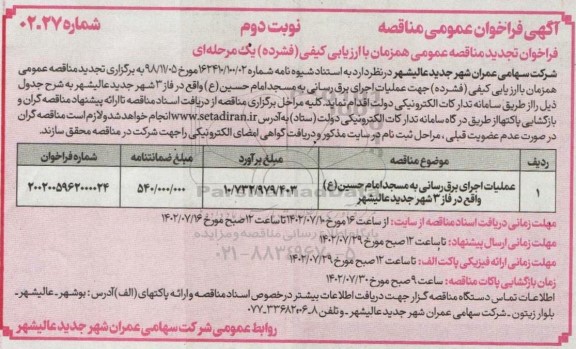 آگهی فراخوان عمومی مناقصه
نوبت دوم
شماره ۰۲-۲۷
فراخوان تجدید مناقصه عمومی همزمان با ارزیابی کیفی (فشرده) یک مرحله‌ای
شرکت سهامی عمران شهر جدید عالیشهر در نظر دارد به استناد شیوه نامه شماره ۱۶۲۴۱۰/۱۰۰/۰۲ مورخ ۹۸/۱۱/۰۵ به برگزاری تجدید مناقصه عمومی
همزمان با ارزیابی کیفی (فشرده) جهت عملیات اجرای برق رسانی به مسجد امام حسین (ع) واقع در فاز ۳ شهر جدید عالیشهر به شرح جدول
ذیل را از طریق سامانه تدارکات الکترونیکی دولت اقدام نماید. کلیه مراحل برگزاری مناقصه از دریافت اسناد مناقصه تا ارائه پیشنهاد مناقصه گران و
بازگشایی پاکتها از طریق درگاه سامانه تدارکات الکترونیکی دولت (ستاد) به آدرس www.setadiran.ir انجام خواهد شد و لازم است مناقصه گران
در صورت عدم عضویت قبلی، مراحل ثبت نام در سایت مذکور و دریافت گواهی امضای الکترونیکی را جهت شرکت در مناقصه محقق سازند.
ردیف موضوع مناقصه مبلغ برآورد مبلغ ضمانتنامه شماره فراخوان
۱ عملیات اجرای برق رسانی به مسجد امام حسین (ع) ۱۰/۷۳۲/۹۷۹/۴۰۳ ۵۴۰/۰۰۰/۰۰۰ ۲۰۰۲۰۰۵۹۶۲۰۰۰۰۲۴
واقع در فاز ۳ شهر جدید عالیشهر
مهلت زمانی دریافت اسناد مناقصه از سایت: از ساعت ۱۶ مورخ ۱۴۰۲/۰۷/۱۰ تا ساعت ۱۲ صبح مورخ ۱۴۰۲/۰۷/۱۶
مهلت زمانی ارسال پیشنهاد: تا ساعت ۱۲ صبح مورخ ۱۴۰۲/۰۷/۲۹
مهلت زمانی ارائه فیزیکی پاکت الف: تا ساعت ۱۲ صبح مورخ ۱۴۰۲/۰۷/۲۹
زمان بازگشایی پاکات مناقصه: ساعت ۹ صبح مورخ ۱۴۰۲/۰۷/۳۰
اطلاعات تماس دستگاه مناقصه گزار جهت دریافت اطلاعات بیشتر در خصوص اسناد مناقصه و ارائه پاکتهای (الف) آدرس: بوشهر - عالیشهر -
بلوار زیتون - شرکت سهامی عمران شهر جدید عالیشهر - و تلفن ۸-۰۷۷-۳۳۶۸۲۰۶
روابط عمومی شرکت سهامی عمران شهر جدید عالیشهر